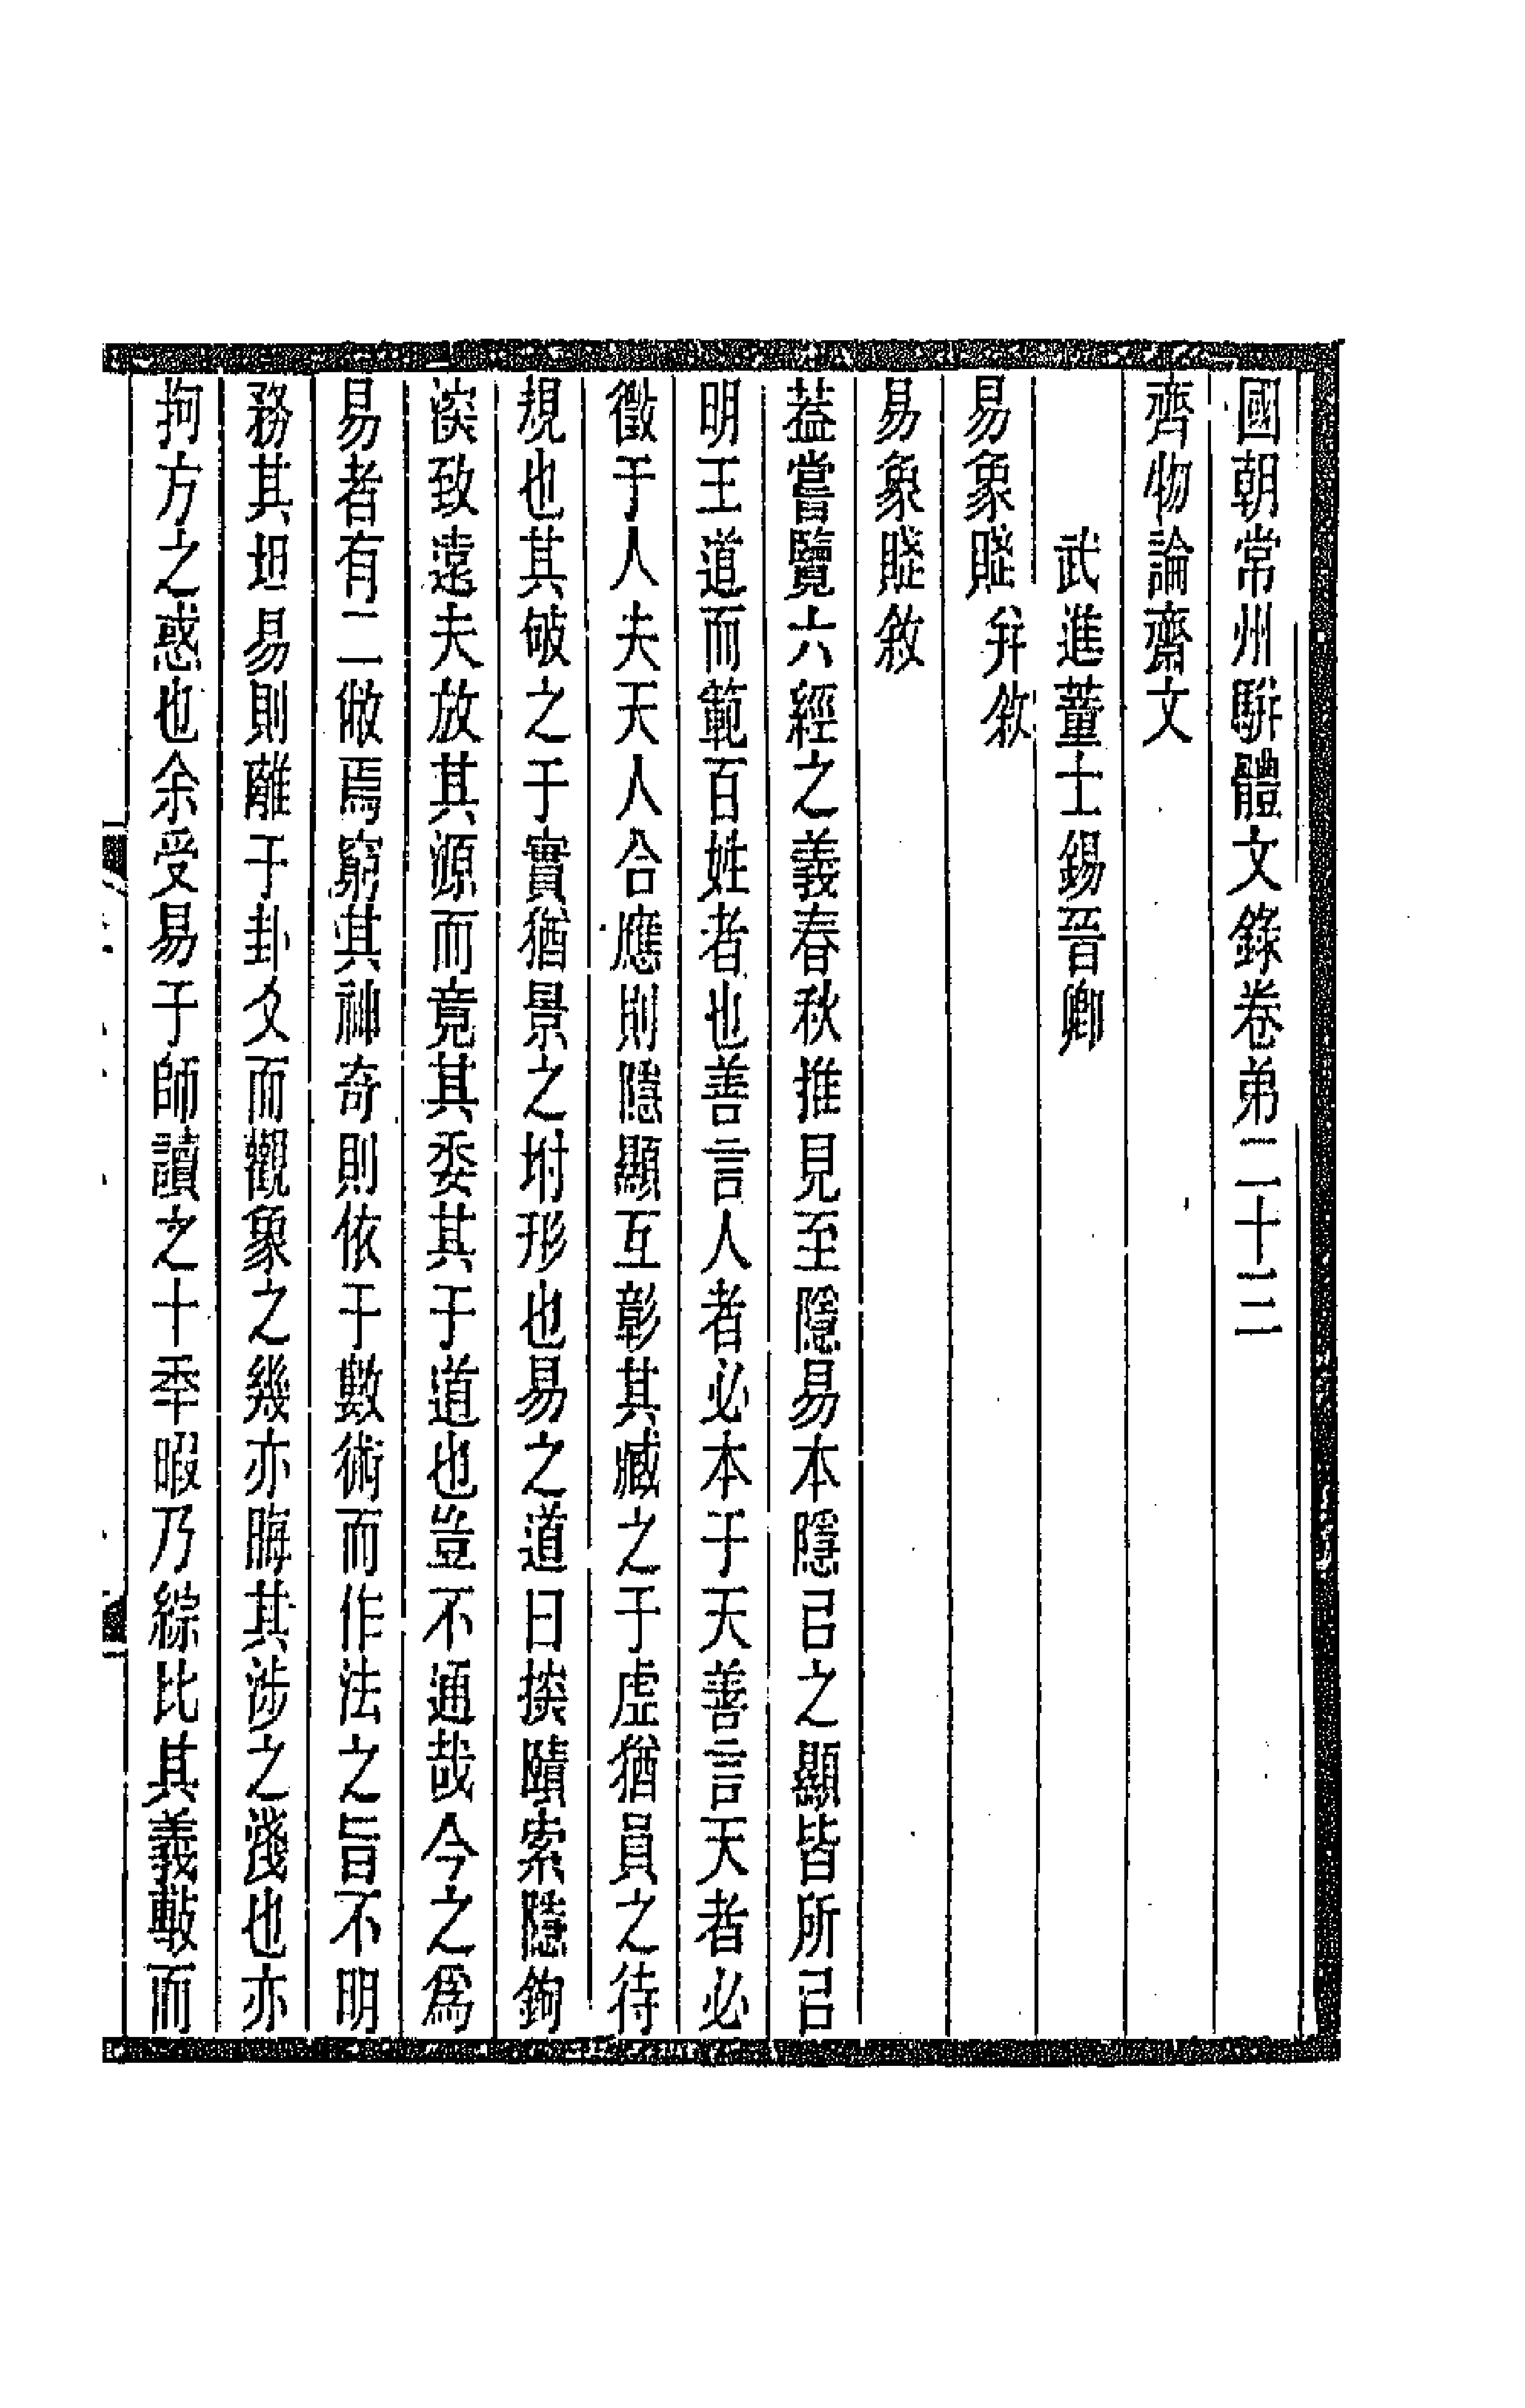 國朝常州駢體文錄卷弟二十三
齊物論齋文
武進董士錫晉卿
易象賦并敘
易象賦敘
葢嘗覽六經之義春秋推見至隱易本隱㠯之顯皆所㠯
明王道而範百姓者也善言人者必本于天善言天者必
徵于人夫天人合應則隱顯互彰其臧之于虛猶員之待
規也其破之于實猶景之坿形也易之道曰㨷賾索隱鉤
㴱致遠夫放其源而竟其委其于道也豈不通哉今之爲
易者有二㡀焉窮其神奇則依于數術而作法之旨不明
務其坦易則離于卦爻而觀象之幾亦晦其涉之淺也亦
拘方之惑也余受易于師讀之十季暇乃綜比其義㪣而